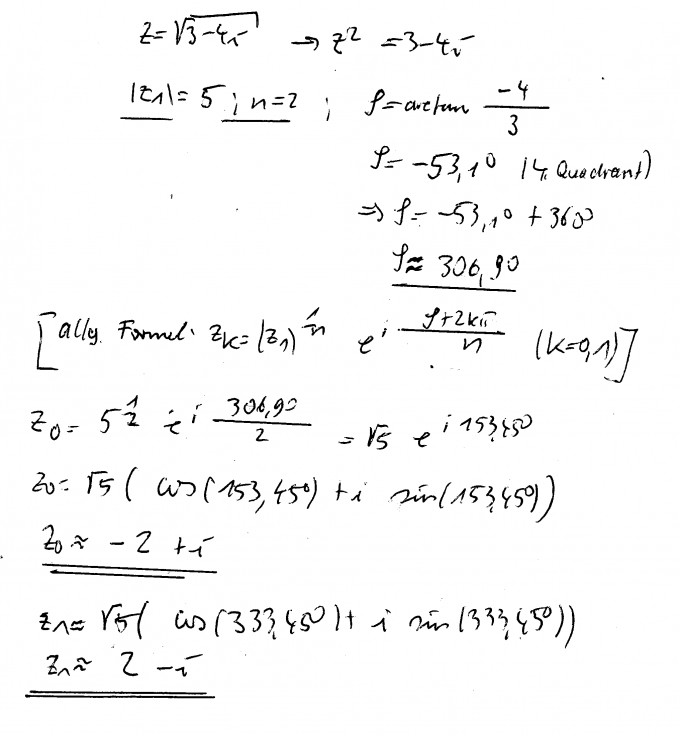 z=√3-4i → z² =3-4i
|z1|= 5 ; n=2 ; φ=arctan -4/3
φ= -53,1° (4. Quadrant)
⇒ φ= -53,1° + 360°
φ≈ 306,9°
[allg. Formel: zk= |z1|^1/n e^i (φ+2kπ)/n (k=0,1)]
z0= 5^1/2 · e^i 306,9°/2 = √5 e^i 153,45°
z0= √5 ( cos(153,45°) +i sin(153,45°))
z0≈ -2 +i
z1= √5( cos(333,45°)+ i sin(333,45°))
z1≈ 2 -i